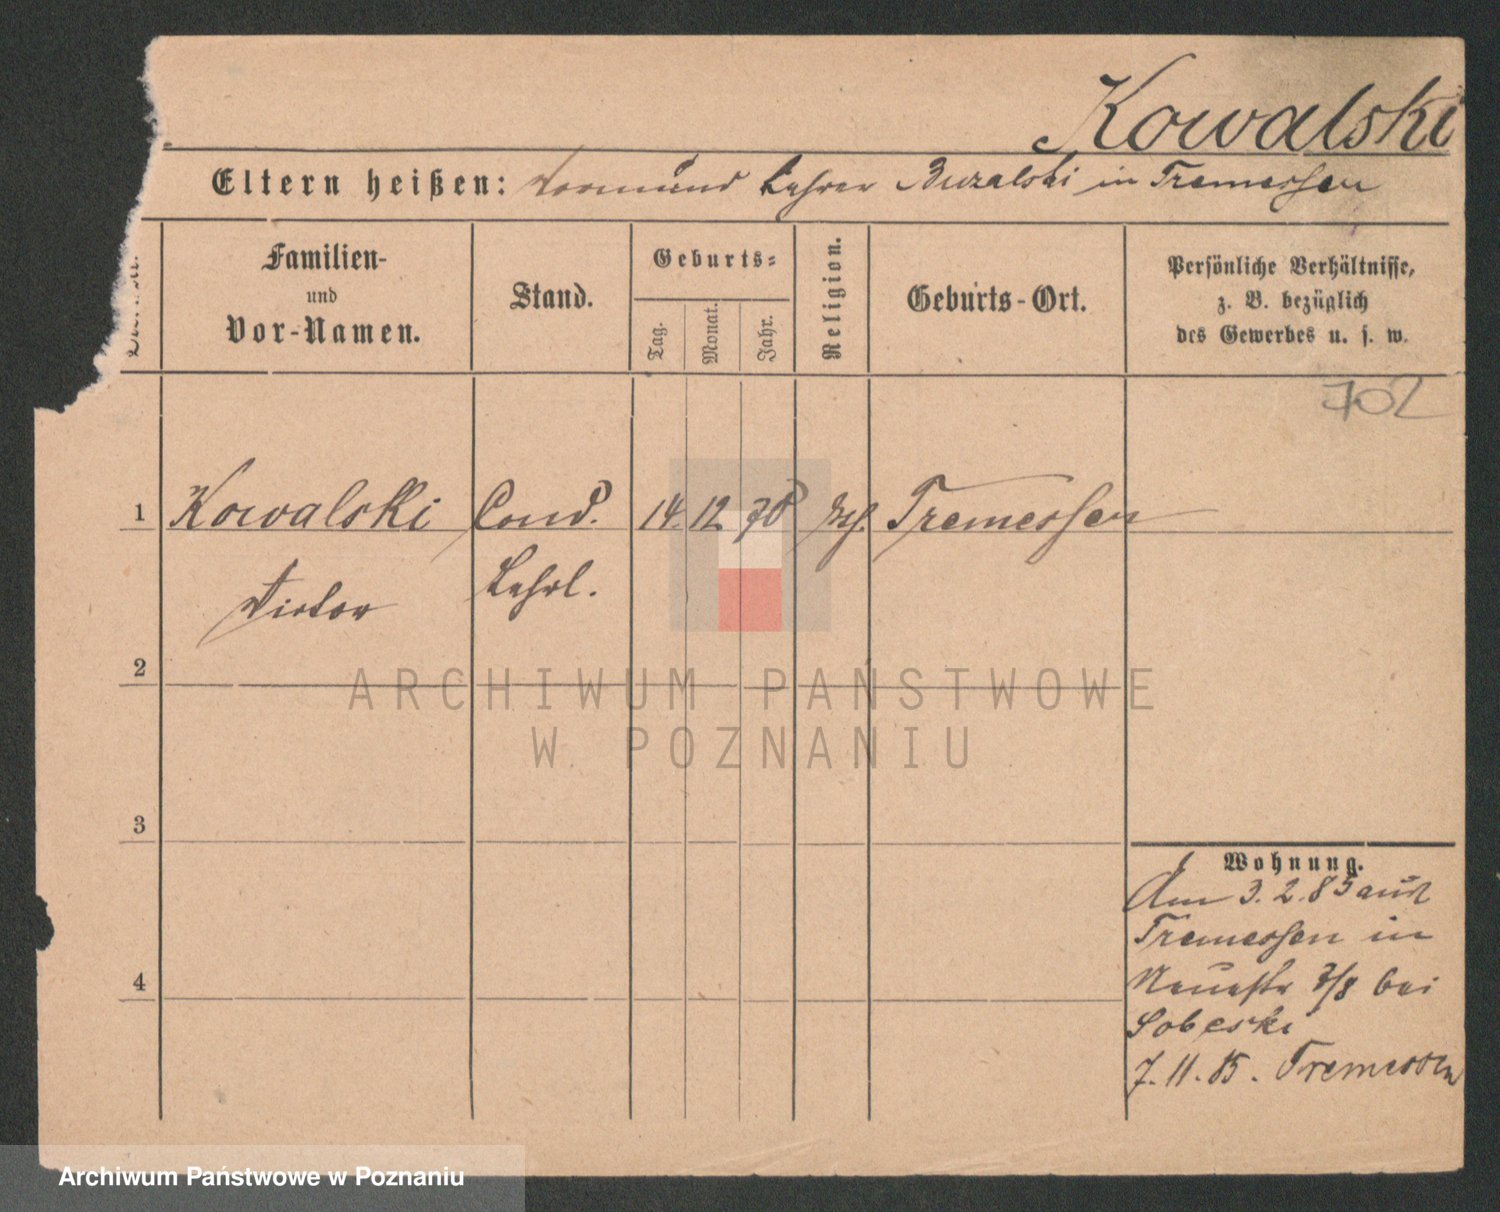 Kowalski
Eltern heißen: Vormund Lehrer Buzalski in Tremessen
Familien-
und
Vor-Namen.
Stand.
Geburts-
Tag.
Monat.
Jahr.
Religion.
Geburts-Ort.
Persönliche Verhältnisse,
z. B. bezüglich
des Gewerbes u. s. w.
702
1 Kowalski Cond. 14. 12 70 Tremessen
Victor Lehrl.
2
3
4
Wohnung.
Am 3. 2. 85 aus
Tremessen in
Neuestr 7/8 bei
Sobeski
7. 11. 85. Tremessen
ARCHIWUM PAŃSTWOWE
W POZNANIU
Archiwum Państwowe w Poznaniu